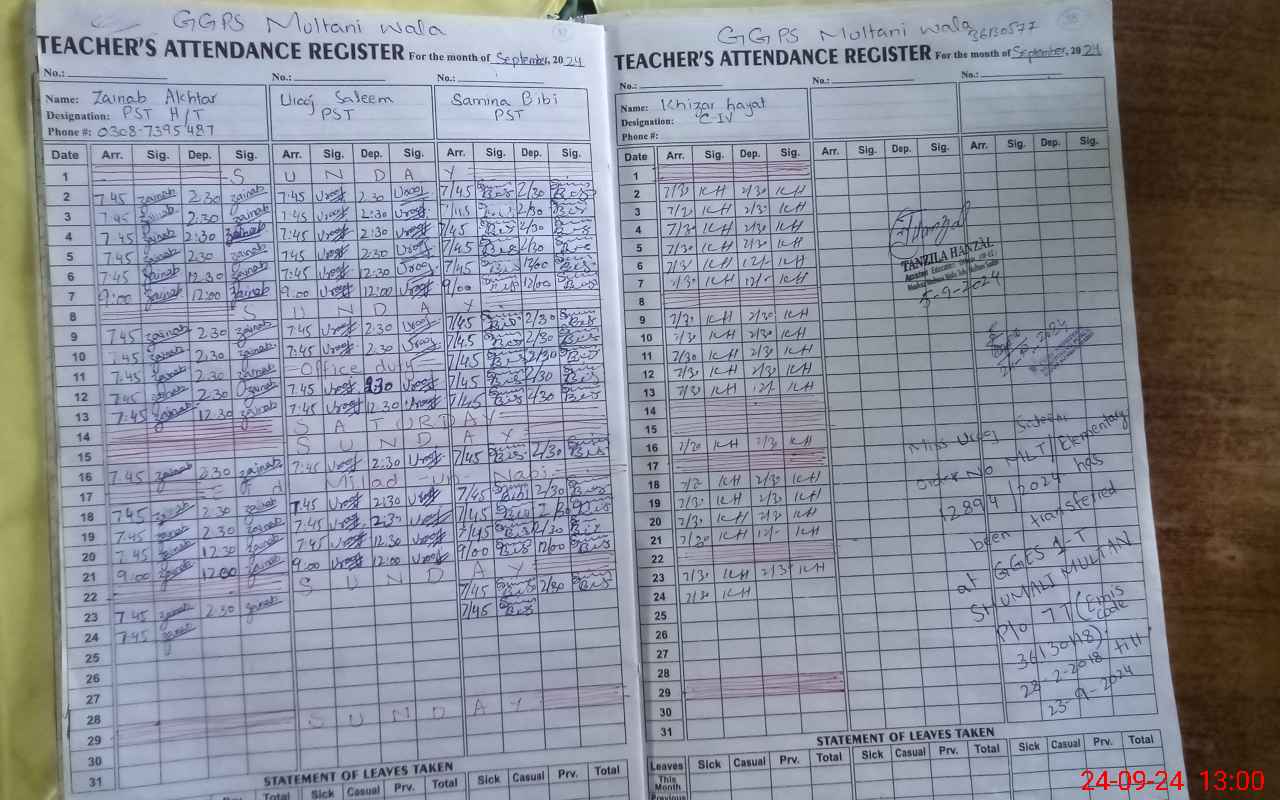 GGPS Multani Wala
TEACHER'S ATTENDANCE REGISTER For the month of September, 2024
No.: No.: No.:
Name: Zainab Akhtar Uroj Saleem Samina Bibi
Designation: PST H/T PST PST
Phone #: 0308-7395487
Date Arr. Sig. Dep. Sig. Arr. Sig. Dep. Sig. Arr. Sig. Dep. Sig.
1 S U N D A Y
2 7:45 zainab 2:30 zainab 7:45 Uroof 2:30 Uroof 7/45 2/30
3 7:45 zainab 2:30 zainab 7:45 Uroof 2:30 Uroof 2/30
4 7:45 zainab 2:30 zainab 7:45 Uroof 2:30 Uroof 7/45 2/30
5 7:45 zainab 2:30 zainab 7:45 Uroof 2:30 Uroof 7/45 2/30
6 7:45 zainab 12:30 zainab 7:45 Uroof 12:30 Uroof 7/45
7 9:00 zainab 12:00 zainab 9:00 Uroof 12:00 Uroof 9/00 12/00
8 S U N D A Y
9 7:45 zainab 2:30 zainab 7:45 Uroof 2:30 Uroof 7/45 2/30
10 7:45 zainab 2:30 zainab 7:45 Uroof 2:30 Uroof 7/45 2/30
11 7:45 zainab 2:30 zainab Office duty 7/45 2/30
12 7:45 zainab 2:30 zainab 7:45 Uroof 2:30 Uroof 7/45 2/30
13 7:45 zainab 12:30 zainab 7:45 Uroof 12:30 Uroof 7/45
14 S A T U R D A Y
15 S U N D A Y
16 7:45 zainab 2:30 zainab 7:45 Uroof 2:30 Uroof 7/45 2/30
17 Eid Millad un Nabi
18 7:45 zainab 2:30 zainab 7:45 Uroof 2:30 Uroof 7/45 2/30
19 7:45 zainab 2:30 zainab 7:45 Uroof 2:30 Uroof 7/45 2/30
20 7:45 zainab 12:30 zainab 7:45 Uroof 12:30 Uroof 7/45
21 9:00 zainab 12:00 zainab 9:00 Uroof 12:00 Uroof 9/00 12/00
22 S U N D A Y
23 7:45 zainab 2:30 zainab 7/45 2/30
24 7:45 zainab 7/45
25
26
27
28
29 S U N D A Y
30
31
STATEMENT OF LEAVES TAKEN
Prv. Total Sick Casual Prv. Total Sick Casual Prv. Total
GGPS Multani Wala
36130577
38
TEACHER'S ATTENDANCE REGISTER For the month of September, 2024
No.: No.: No.:
Name: Khizar hayat
Designation: C-IV
Phone #:
Date Arr. Sig. Dep. Sig. Arr. Sig. Dep. Sig. Arr. Sig. Dep. Sig.
1
2 7/30 KH 2/30 KH
3 KH 2/30 KH
4 7/30 KH 2/30 KH
5 7/30 KH 2/30 KH
6 7/30 KH 12/- KH
7 7/30 KH 12/- KH
8
9 7/30 KH 2/30 KH
10 7/30 KH 2/30 KH
11 7/30 KH 2/30 KH
12 7/30 KH 2/30 KH
13 7/30 KH 12/- KH
14
15
16 7/30 KH 2/30 KH
17
18 KH 2/30 KH
19 7/30 KH 2/30 KH
20 7/30 KH 2/30 KH
21 7/30 KH 12/- KH
22
23 7/30 KH 2/30 KH
24 7/30 KH
25
26
27
28
29
30
31
TANZILA HANZAL
5-9-2024
Miss Uroj Saleem
order No MLT/Elementary
12894/2024 has
been transferred
at GGES 1-T
SHUMALI MULTAN
P/o TT (Emis
code
36130118)
22-2-2018 till
23-9-2024
STATEMENT OF LEAVES TAKEN
Leaves Sick Casual Prv. Total Sick Casual Prv. Total Sick Casual Prv. Total
This
Month
Previous
24-09-24 13:00